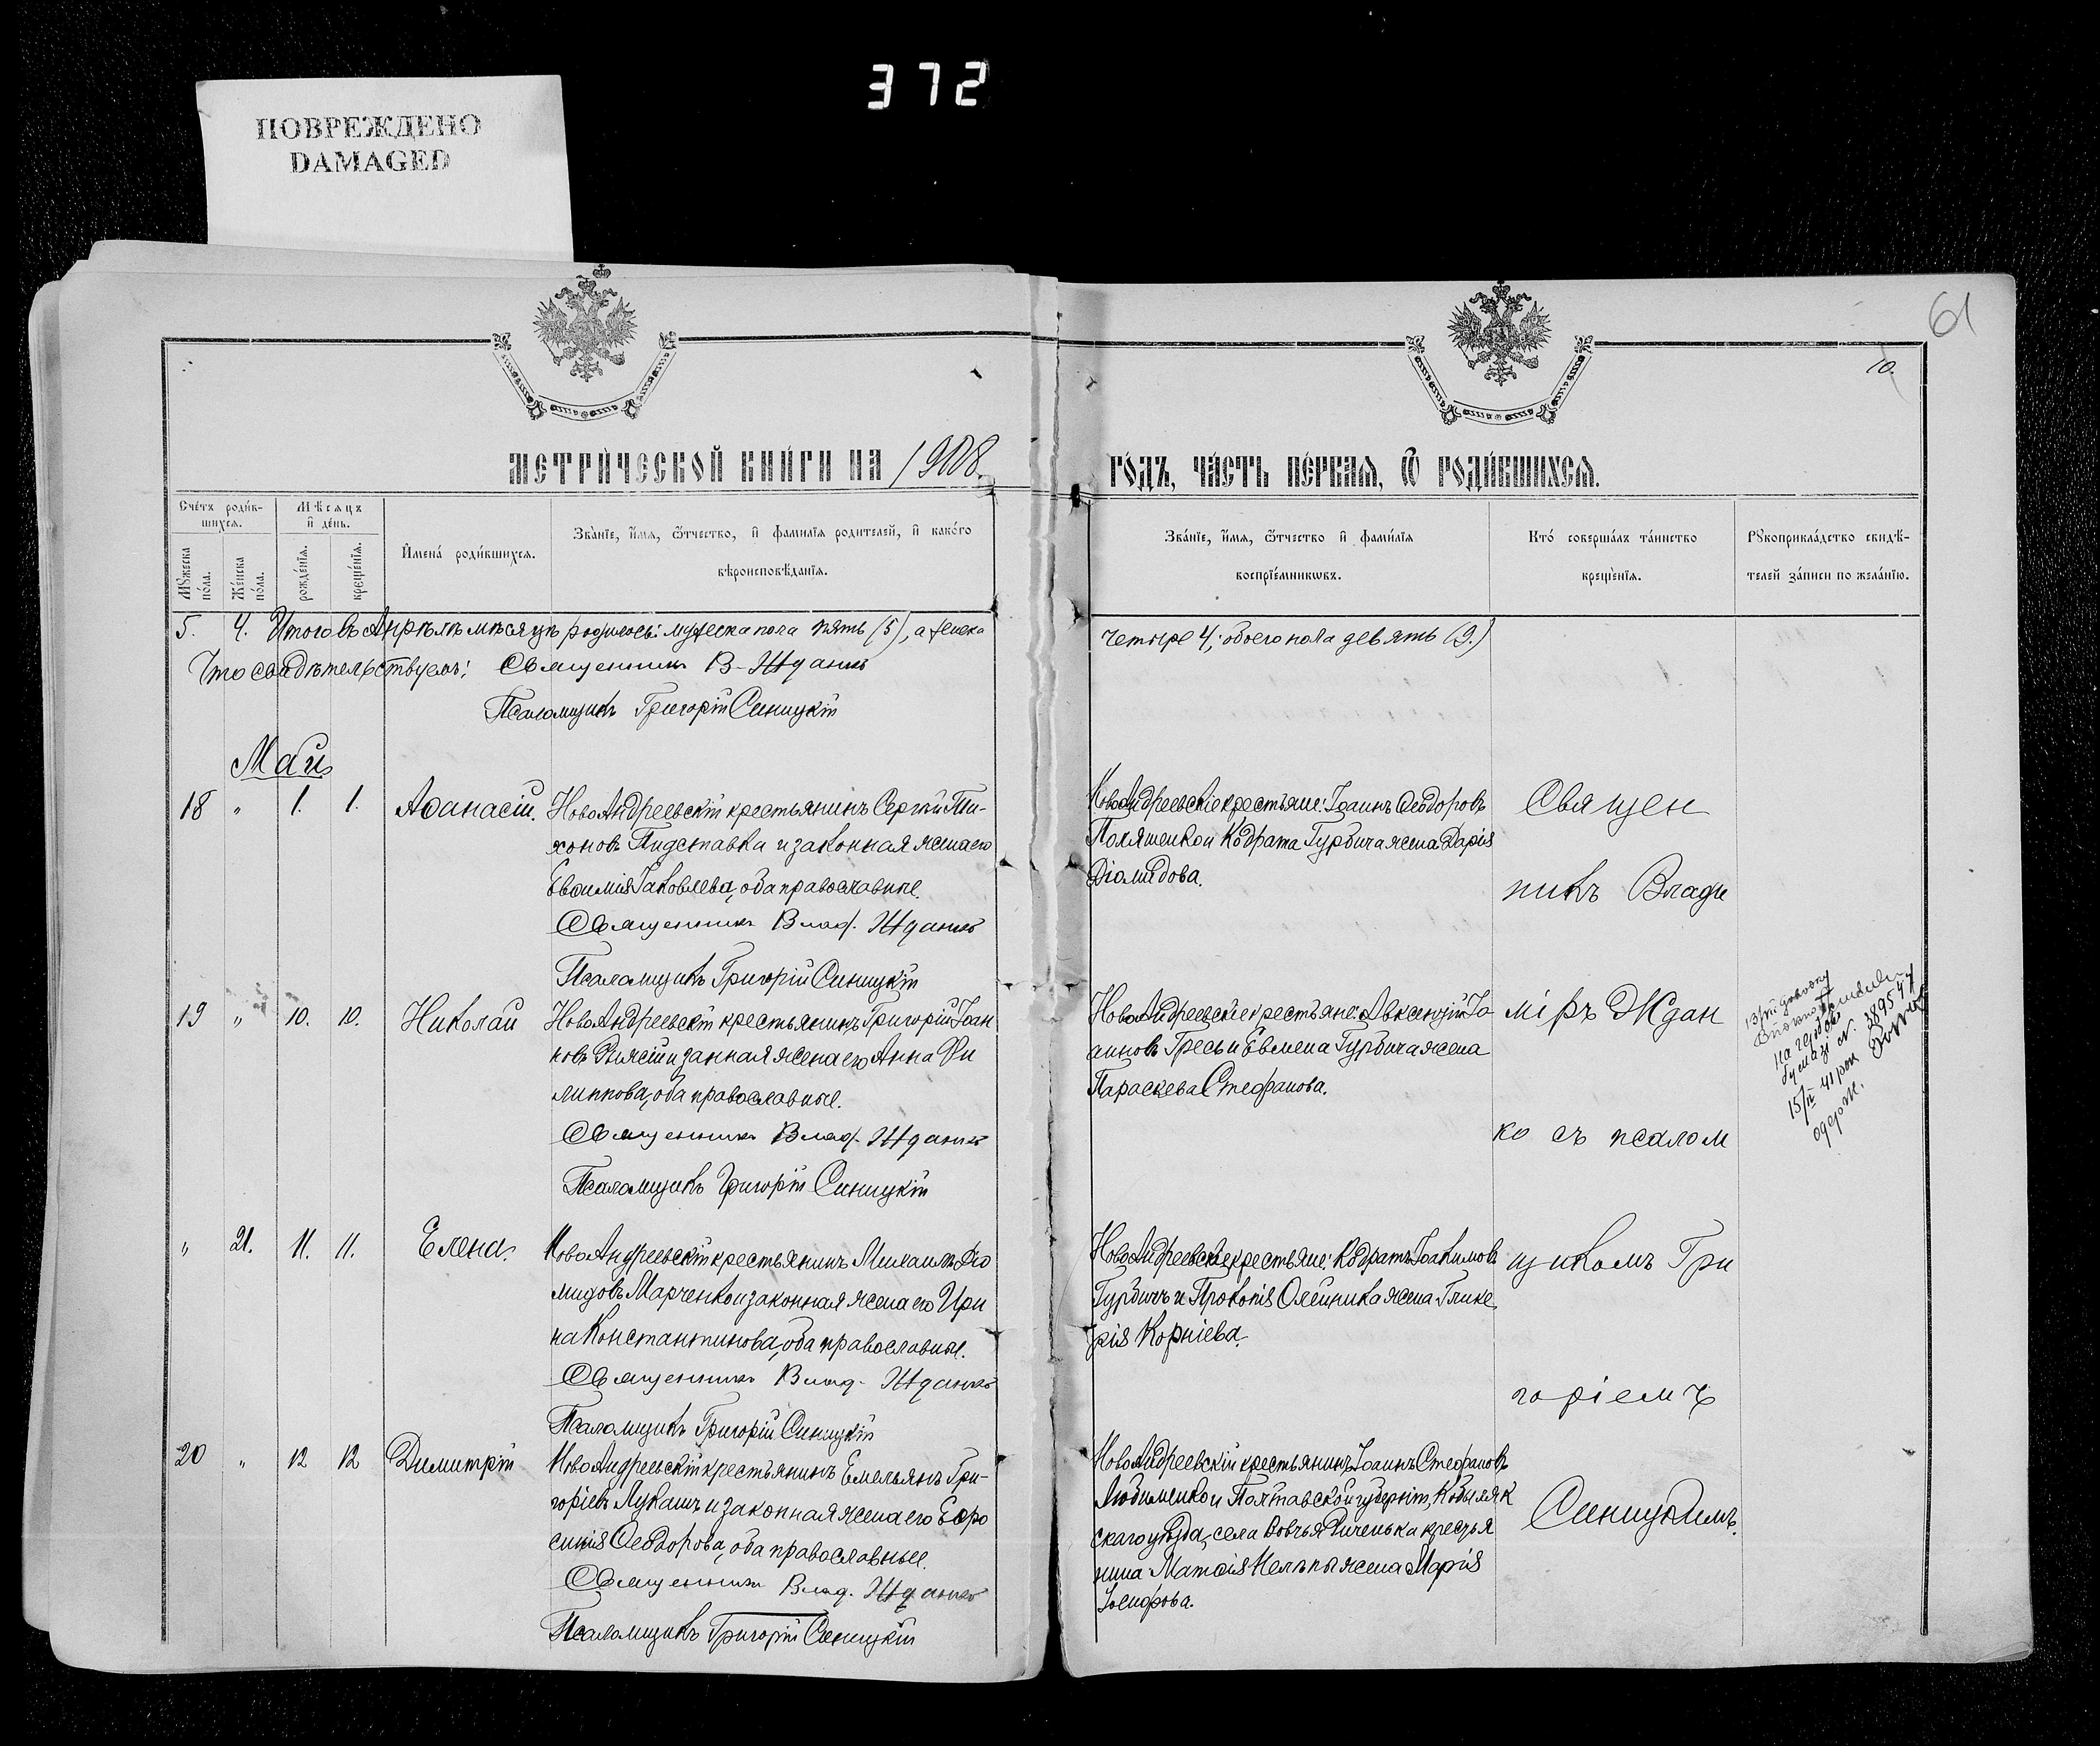 372
ПОВРЕЖДЕНО
DAMAGED
61
10.
МЕТРИ́ЧЕСКОЙ КНИ́ГИ НА 1908.
ГО́ДЪ, ЧА́СТЬ ПЕ́РВАѦ, Ѿ РОДИ́ВШИХСѦ.
Сче́тъ роди́вшихсѧ.
Мѣ́сѧцъ и҆ де́нь.
Мꙋ́жеска по́ла.
Же́нска по́ла.
рожде́нїѧ.
креще́нїѧ.
И҆мена́ роди́вшихсѧ.
Зва́нїе, и҆́мѧ, ѻ҆́тчество, и҆ фами́лїѧ роди́телей, и҆ како́гѡ
вѣроисповѣ́данїѧ.
Зва́нїе, и҆́мѧ, ѻ҆́тчество и҆ фами́лїѧ
воспрїе́мникѡвъ.
Кто̀ соверша́лъ та́инство
креще́нїѧ.
Рꙋкоприкла́дство свидѣ́-
телей за́писи по жела́нїю.
5. 4. Итого въ Апрѣлѣ мѣсяцѣ родилось: мужеска пола пять (5), а женска
четыре 4; обоего пола девять (9.)
Что свидѣтельствуемъ: Священникъ В. Жданко
Псаломщикъ Григорій Синицкій
Май
18 " 1. 1. Аѳанасій. НовоАндреевскій крестьянинъ Сергій Ти-
хоновъ Пидставка и законная жена его
Евѳимія Іаковлева, оба православные.
Священникъ Влад. Жданко
Псаломщикъ Григорій Синицкій
НовоАндреевскіе крестьяне: Іоаннъ Ѳеодоровъ
Поляшенко и Кодрата Гурбича жена Дарія
Діомидова.
19 " 10. 10. Николай НовоАндреевскій крестьянинъ Григорій Іоан
новъ и законная жена его Анна Фи
липпова, оба православные.
Священникъ Влад. Жданко
Псаломщикъ Григорій Синицкій
НовоАндреевскіе крестьяне: Авксентій Іо
анновъ Гресь и Евмена Гурбича жена
Параскева Стефанова.
" 21. 11. 11. Елена. НовоАндреевскій крестьянинъ Михаилъ Діо
мидовъ Марченко и законная жена его Ири
на Константинова, оба православные.
Священникъ Влад. Жданко
Псаломщикъ Григорій Синицкій
НовоАндреевскіе крестьяне: Кодратъ Іоакимовъ
Гурбичъ и Прокопія Олейника жена Глике
рія Корніева.
20 " 12 12 Димитрій НовоАндреевскій крестьянинъ Емельянъ Гри-
горіевъ Лукашъ и законная жена его Евфро
синія Ѳеодорова, оба православные.
Священникъ Влад. Жданко
Псаломщикъ Григорій Синицкій
НовоАндреевскій крестьянинъ Іоаннъ Стефановъ
Любименко и Полтавской губерніи, Кобыляк
скаго уѣзда, села крестья
нина Матѳія жена Марія
Іосифова.
Священ
никъ Влади
міръ Ждан
ко съ псалом
щикомъ Гри
горіемъ
Синицкимъ.
13/VII
N. 389547
15/IV 41 рок